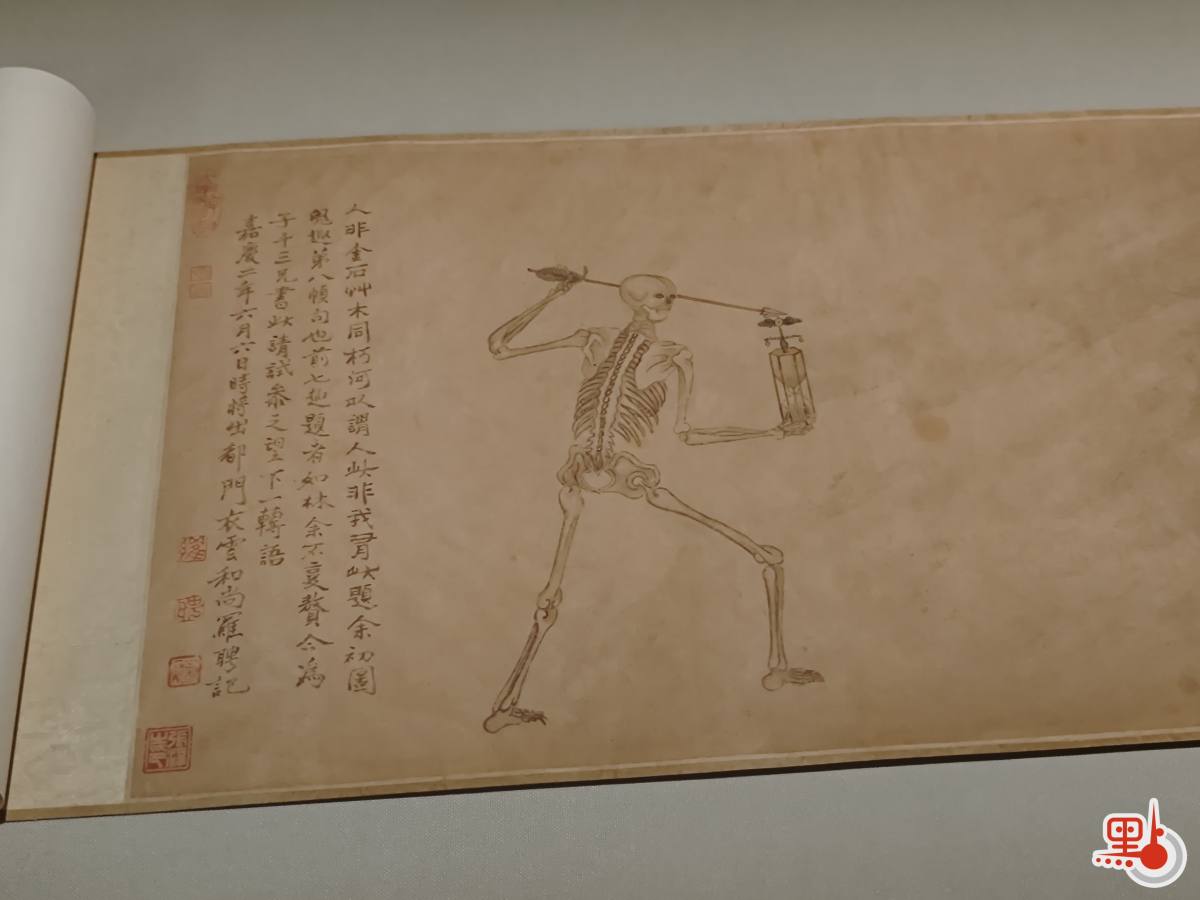 人非金石艸木同朽何以謂人此非我有此題余初圖
鬼趣第八幀句也前七趣題者如林余不更贅今為
子千三兄書此請試參之望下一轉語
嘉慶二年六月六日時將出都門衣雲和尚羅聘記
點